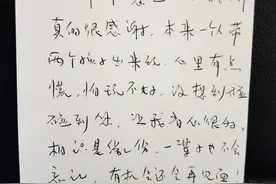 真的很感谢，本来一个人带
两个孩子出来玩，心里有点
慌，怕玩不好，没想到碰
到你，让我省心很多，
相识是缘份，一辈子也不会
忘记，有机会还会再见面！